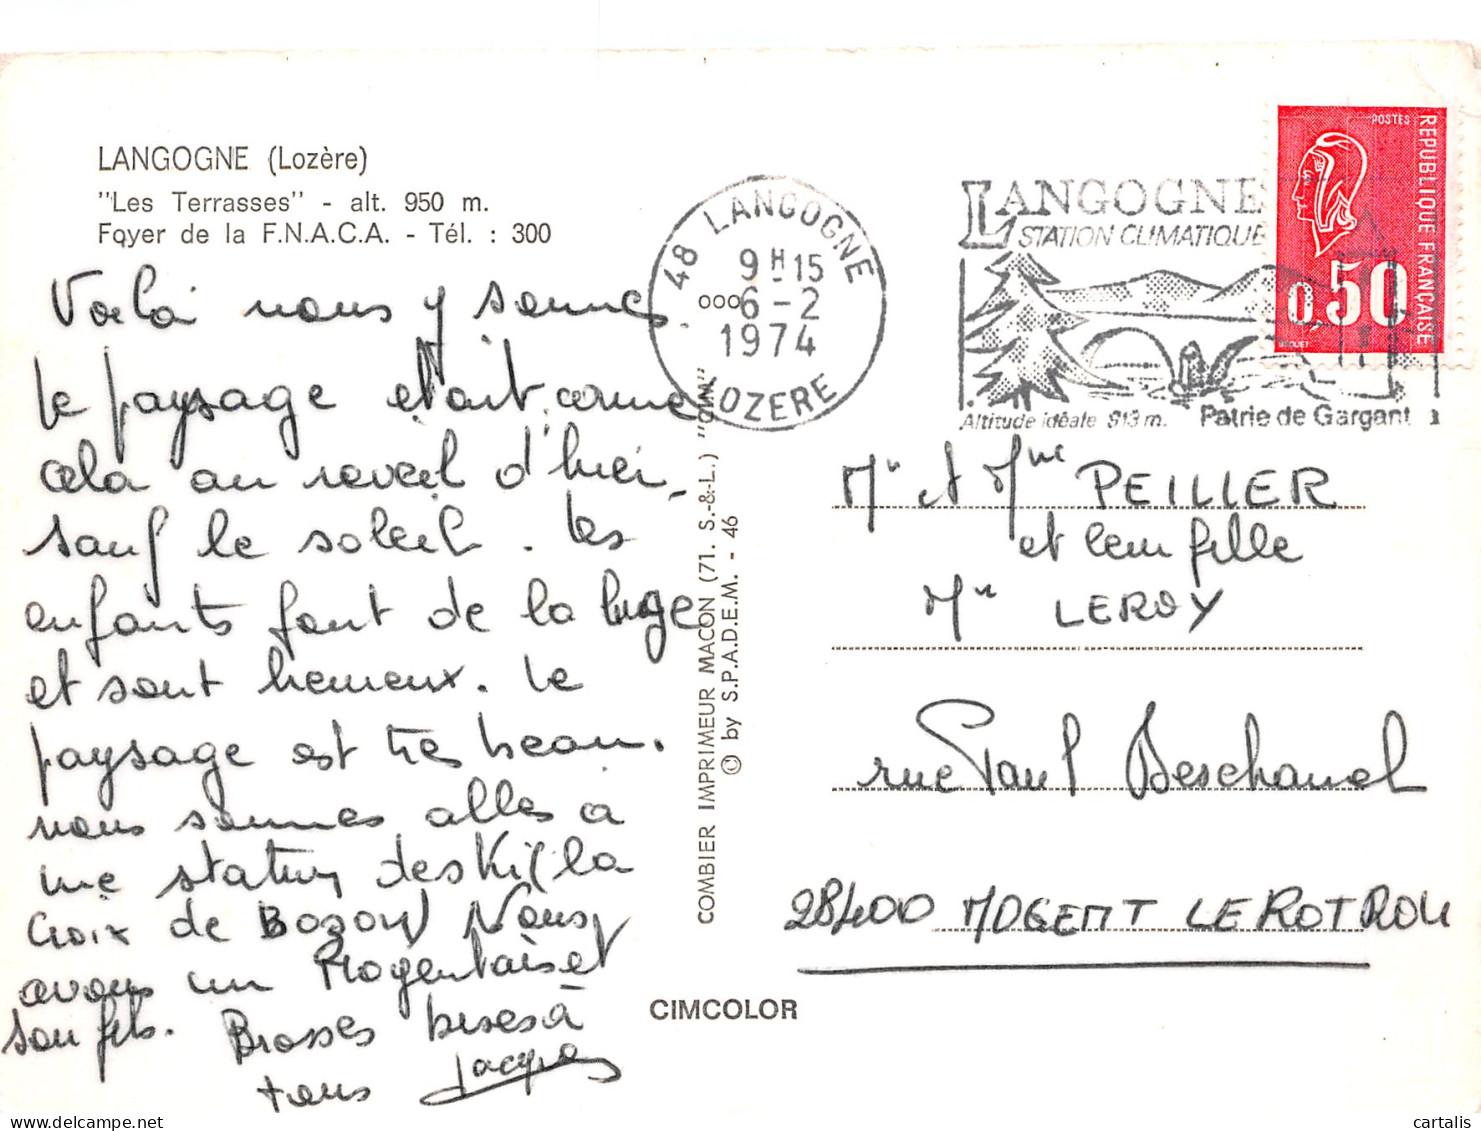 LANGOGNE (Lozère)
"Les Terrasses" - alt. 950 m.
Foyer de la F.N.A.C.A. - Tél. : 300
Voilà nous y sommes.
Le paysage était comme
cela au réveil d'hier,
sauf le soleil. Les
enfants font de la luge
et sont heureux. Le
paysage est très beau.
nous sommes allés à
une station de ski la
Croix de Bozon Nous
avons un Nogentais et
son fils. Grosses bises à
tous Jacques
COMBIER IMPRIMEUR MACON (71. S.-&-L.) "CIM"
© by S.P.A.D.E.M. - 46
CIMCOLOR
48 LANGOGNE
9H15
6-2
1974
LOZERE
LANGOGNE
STATION CLIMATIQUE
Altitude idéale 913 m. Patrie de Gargant
POSTES
REPUBLIQUE FRANÇAISE
0,50
BEQUET
Mr et Mme PEILLER
et leur fille
Mr LEROY
rue Paul Deschanel
28400 NOGENT LE ROTROU
cartalis
www.delcampe.net